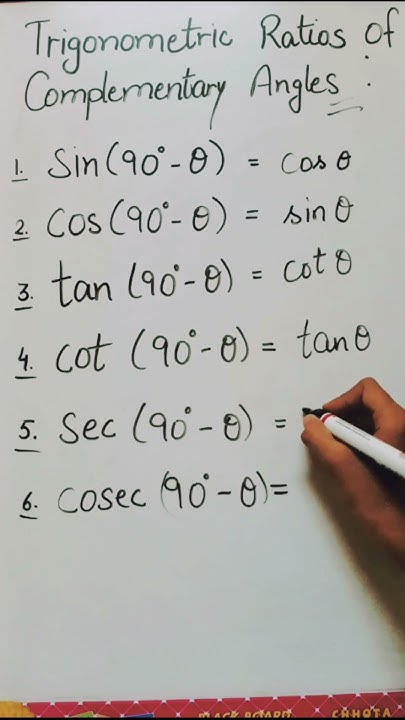 Trigonometric Ratios of
Complementary Angles :
1. Sin (90° - θ) = cos θ
2. Cos (90° - θ) = sin θ
3. tan (90° - θ) = cot θ
4. cot (90° - θ) = tan θ
5. Sec (90° - θ) =
6. Cosec (90° - θ) =
BLACK BOARD CHHOTA